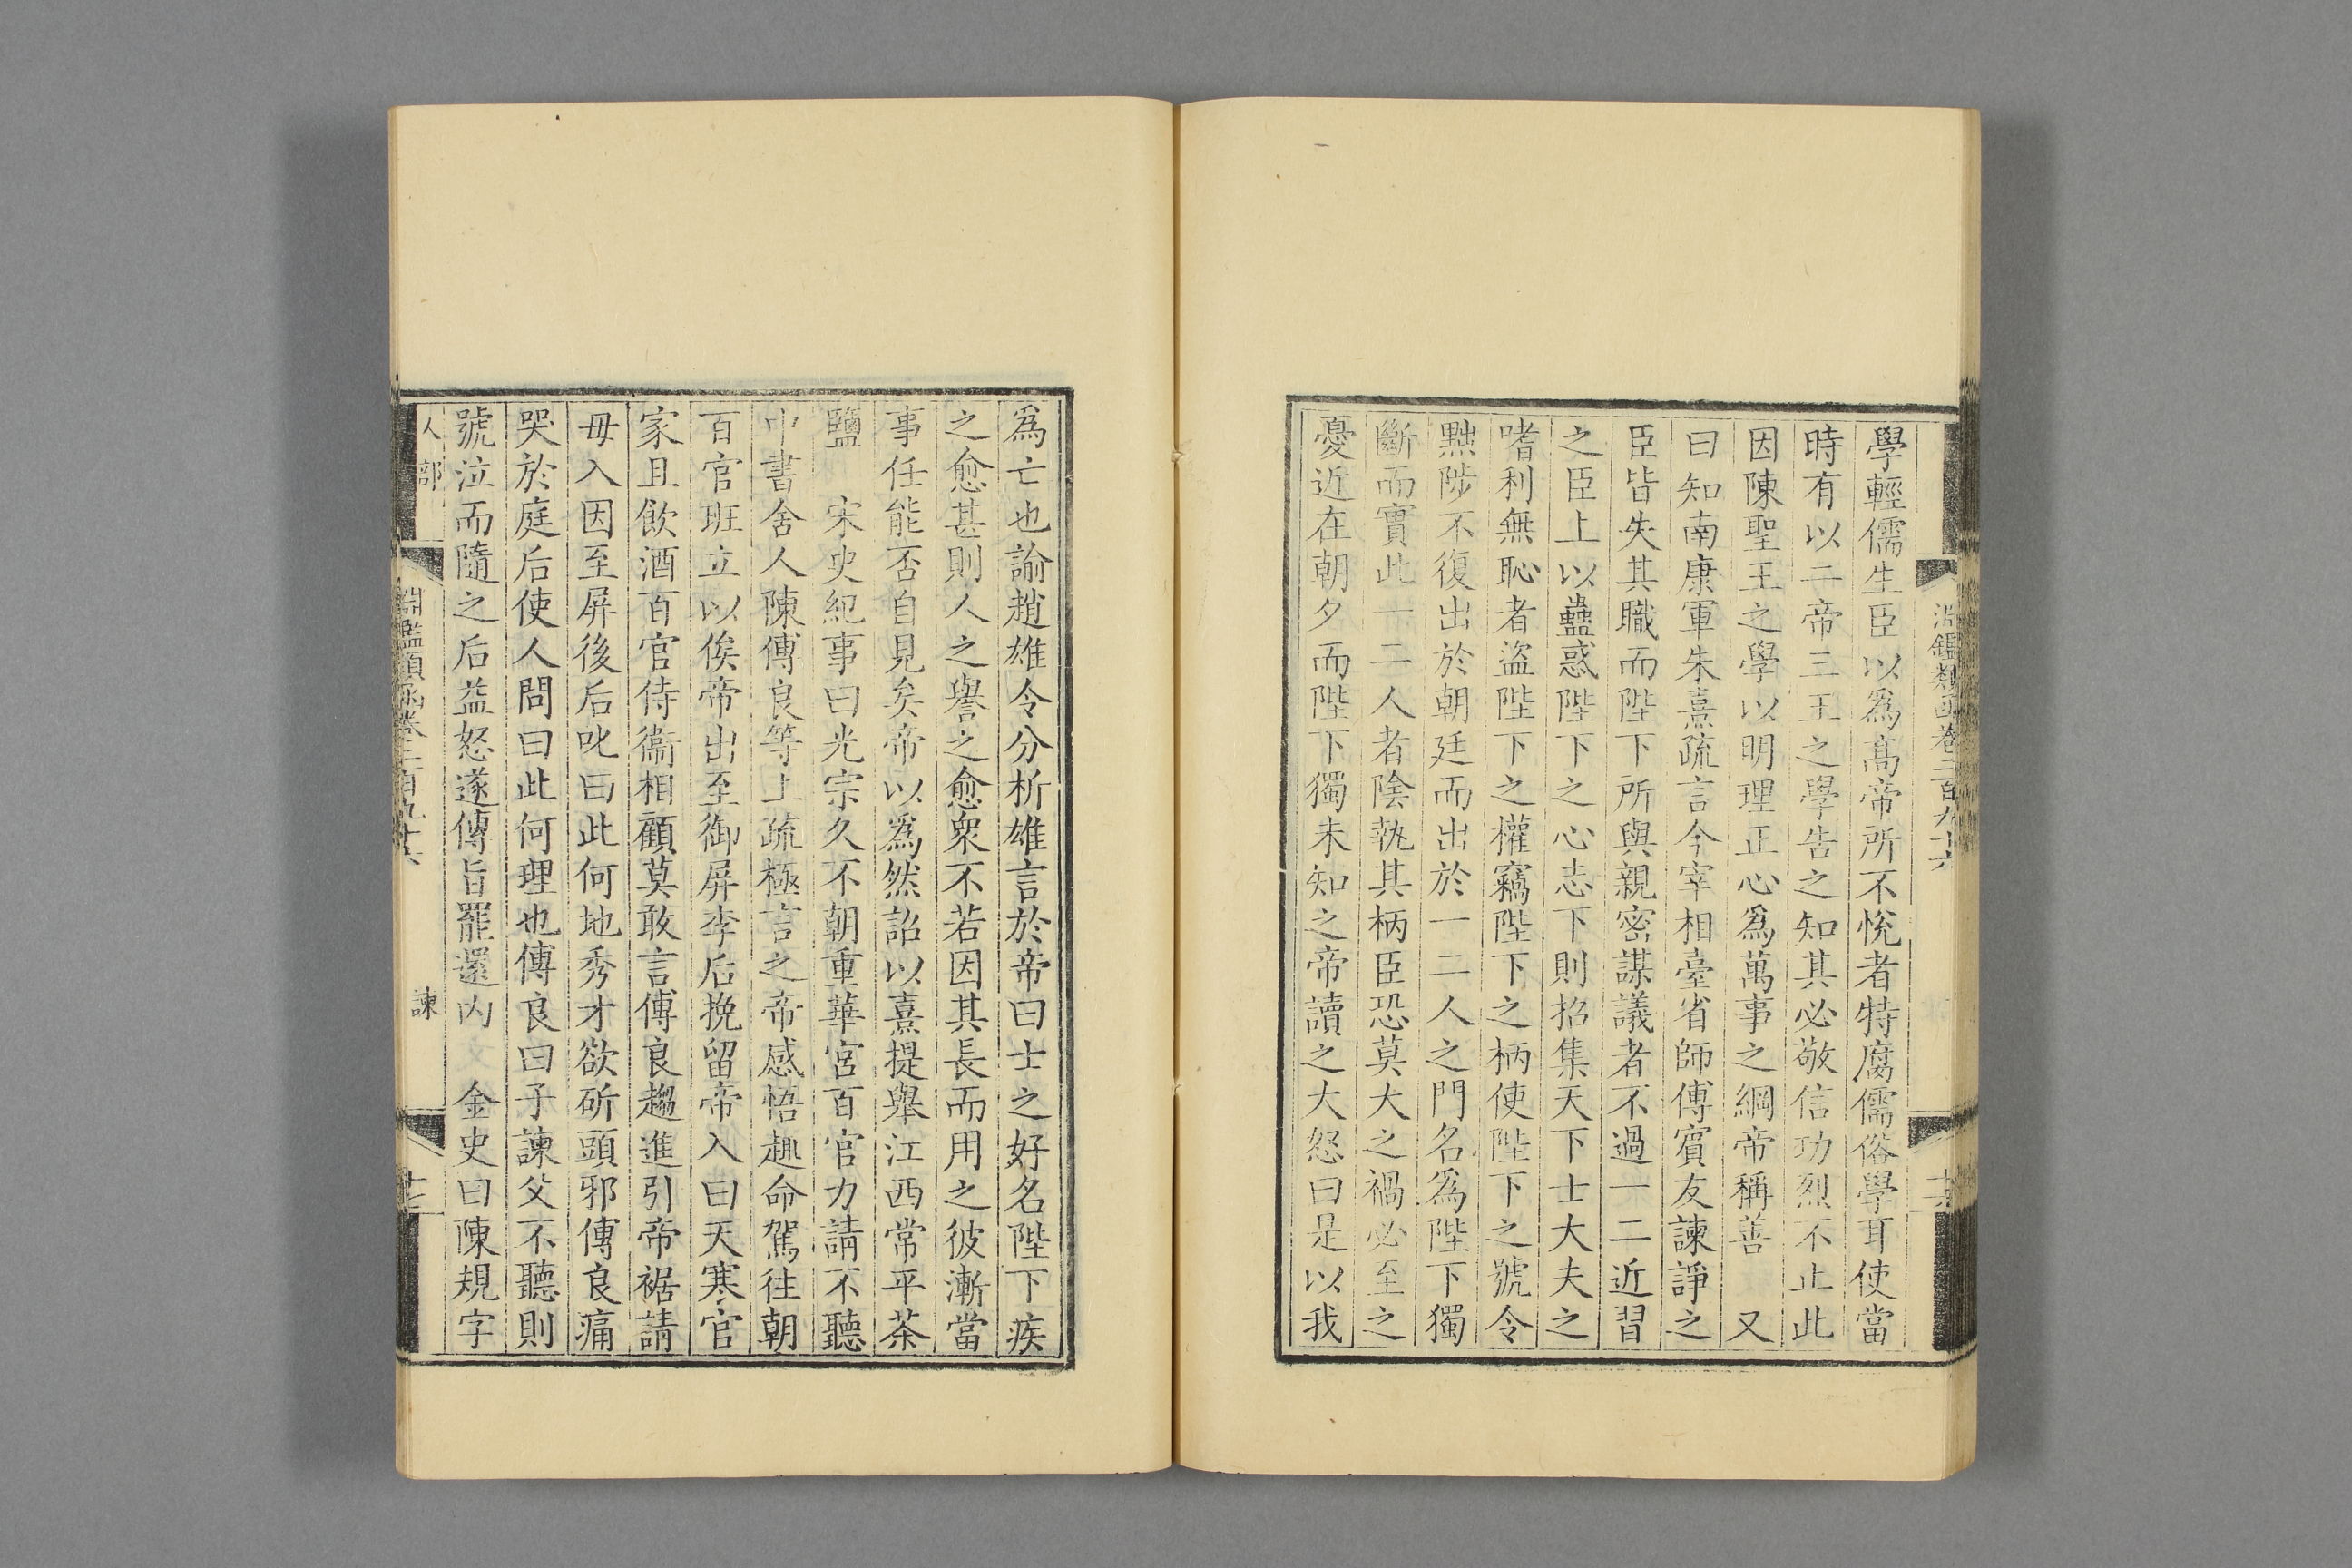 學輕儒生臣以爲髙帝所不悅者特腐儒俗學耳使當
時有以二帝三王之學告之知其必敬信功烈不止此
因陳聖王之學以明理正心爲萬事之綱帝稱善　又
曰知南康軍朱熹疏言今宰相臺省師傅賓友諫諍之
臣皆失其職而陛下所與親密謀議者不過一二近習
之臣上以蠱惑陛下之心志下則招集天下士大夫之
嗜利無恥者盜陛下之權竊陛下之柄使陛下之號令
黜陟不復出於朝廷而出於一二人之門名爲陛下獨
斷而實此一二人者陰執其柄臣恐莫大之禍必至之
憂近在朝夕而陛下獨未知之帝讀之大怒曰是以我
淵鑑類函卷二百九十六
十六
爲亡也諭趙雄令分析雄言於帝曰士之好名陛下疾
之愈甚則人之譽之愈衆不若因其長而用之彼漸當
事任能否自見矣帝以爲然詔以熹提舉江西常平茶
鹽　宋史紀事曰光宗久不朝重華宮百官力請不聽
中書舍人陳傅良等上疏極言之帝感悟趣命駕往朝
百官班立以俟帝出至御屏李后挽留帝入曰天寒官
家且飲酒百官侍衞相顧莫敢言傅良趨進引帝裾請
毋入因至屏後后叱曰此何地秀才欲斫頭邪傅良痛
哭於庭后使人問曰此何理也傅良曰子諫父不聽則
號泣而隨之后益怒遂傳旨罷還内　金史曰陳規字
人部
淵鑑類函卷二百九十六
諫
十七